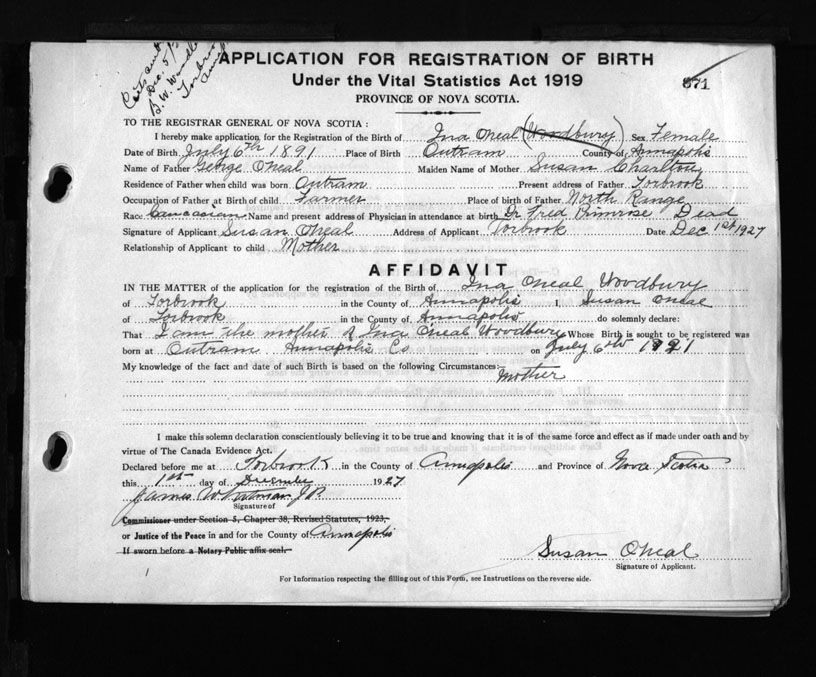 Certs sent
Dec. 5/
B. W. Woodbury
Torbrook
Annap
APPLICATION FOR REGISTRATION OF BIRTH
Under the Vital Statistics Act 1919
871
PROVINCE OF NOVA SCOTIA.
TO THE REGISTRAR GENERAL OF NOVA SCOTIA :
I hereby make application for the Registration of the Birth of Ina Oneal (Woodbury) Sex Female
Date of Birth July 6th 1891 Place of Birth Outram County of Annapolis
Name of Father George Oneal Maiden Name of Mother Susan Charlton
Residence of Father when child was born Outram Present address of Father Torbrook
Occupation of Father at Birth of child Farmer Place of birth of Father North Range
Race Caucasian Name and present address of Physician in attendance at birth Dr Fred Primrose Dead
Signature of Applicant Susan Oneal Address of Applicant Torbrook Date Dec 1st 1927
Relationship of Applicant to child Mother
AFFIDAVIT
IN THE MATTER of the application for the registration of the Birth of Ina Oneal Woodbury
of Torbrook in the County of Annapolis I, Susan Oneal
of Torbrook in the County of Annapolis do solemnly declare:
That I am the mother of Ina Oneal Woodbury Whose Birth is sought to be registered was
born at Outram Annapolis Co on July 6th 1891
My knowledge of the fact and date of such Birth is based on the following Circumstances:—
Mother
I make this solemn declaration conscientiously believing it to be true and knowing that it is of the same force and effect as if made under oath and by
virtue of The Canada Evidence Act.
Declared before me at Torbrook in the County of Annapolis and Province of Nova Scotia
this 1st day of December 1927
James Whitman J P.
Signature of
Commissioner under Section 5, Chapter 38, Revised Statutes, 1923,
or Justice of the Peace in and for the County of Annapolis
If sworn before a Notary Public affix seal.
Susan Oneal
Signature of Applicant.
For Information respecting the filling out of this Form, see Instructions on the reverse side.